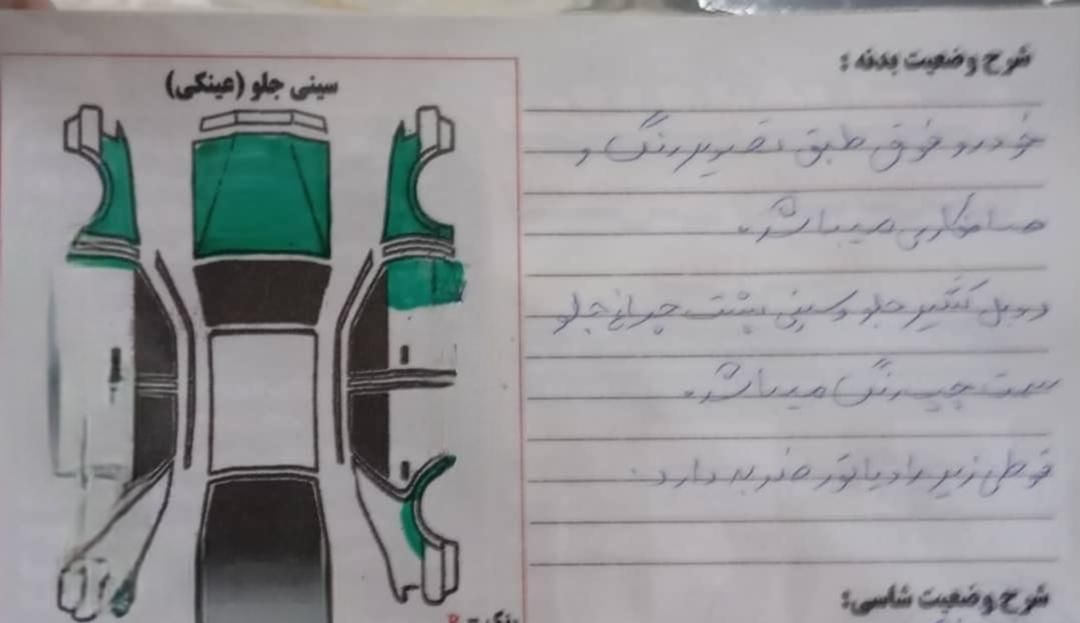 شرح وضعیت بدنه :
سینی جلو (عینکی)
خودرو فوق طبق تصویر رنگ و
صافکاری میباشد.
دوبل گلگیر جلو و سینی پشت چراغ جلو
سمت چپ رنگ میباشد.
قوطی زیر رادیاتور ضربه دارد.
شرح وضعیت شاسی:
رنگ = R